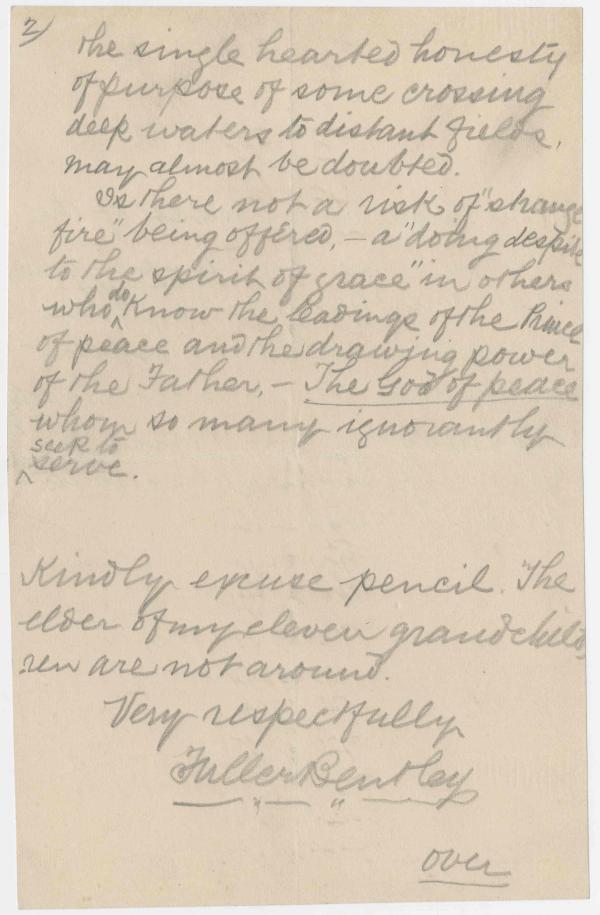 2)
the single hearted honesty
of purpose of some crossing
deep waters to distant fields,
may almost be doubted.
Is there not a risk of "strange
fire" being offered, – a "doing despite
to the spirit of grace" in others
who do know the leadings of the Prince
of peace and the drawing power
of the Father, – The God of peace
whom so many ignorantly
seek to
serve.
Kindly excuse pencil. The
elder of my eleven grandchild
ren are not around.
Very respectfully
Fuller Bentley
over